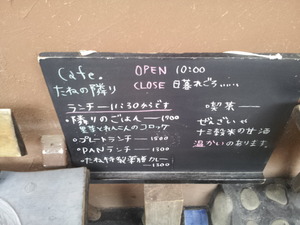 Cafe.
たねの隣り
OPEN 10:00
CLOSE 日暮れごろ......
ランチ―11:30からです
・隣りのごはん―1900
里芋とれんこんのコロッケ
・プレートランチ―1500
・PANランチ―1300
・たね特製薬膳カレー
1300
○喫茶―
ぜんざい
十ミ穀米の甘酒
温かいのあります。